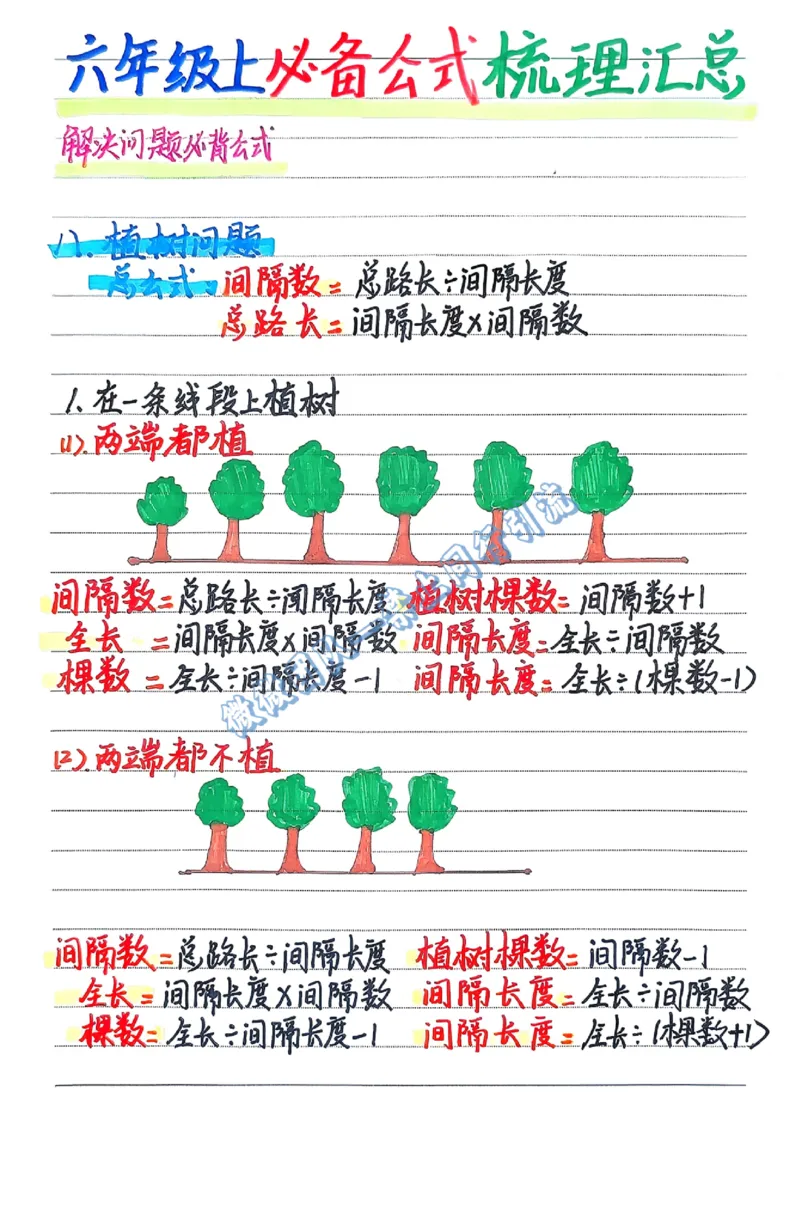 六年级上必备公式梳理汇总
解决问题必背公式
八、植树问题
总公式：间隔数=总路长÷间隔长度
总路长=间隔长度×间隔数
1.在一条线段上植树
(1).两端都植
间隔数=总路长÷间隔长度 植树棵数=间隔数+1
全长=间隔长度×间隔数 间隔长度=全长÷间隔数
棵数=全长÷间隔长度-1 间隔长度=全长÷(棵数-1)
(2).两端都不植
间隔数=总路长÷间隔长度 植树棵数=间隔数-1
全长=间隔长度×间隔数 间隔长度=全长÷间隔数
棵数=全长÷间隔长度-1 间隔长度=全长÷(棵数+1)